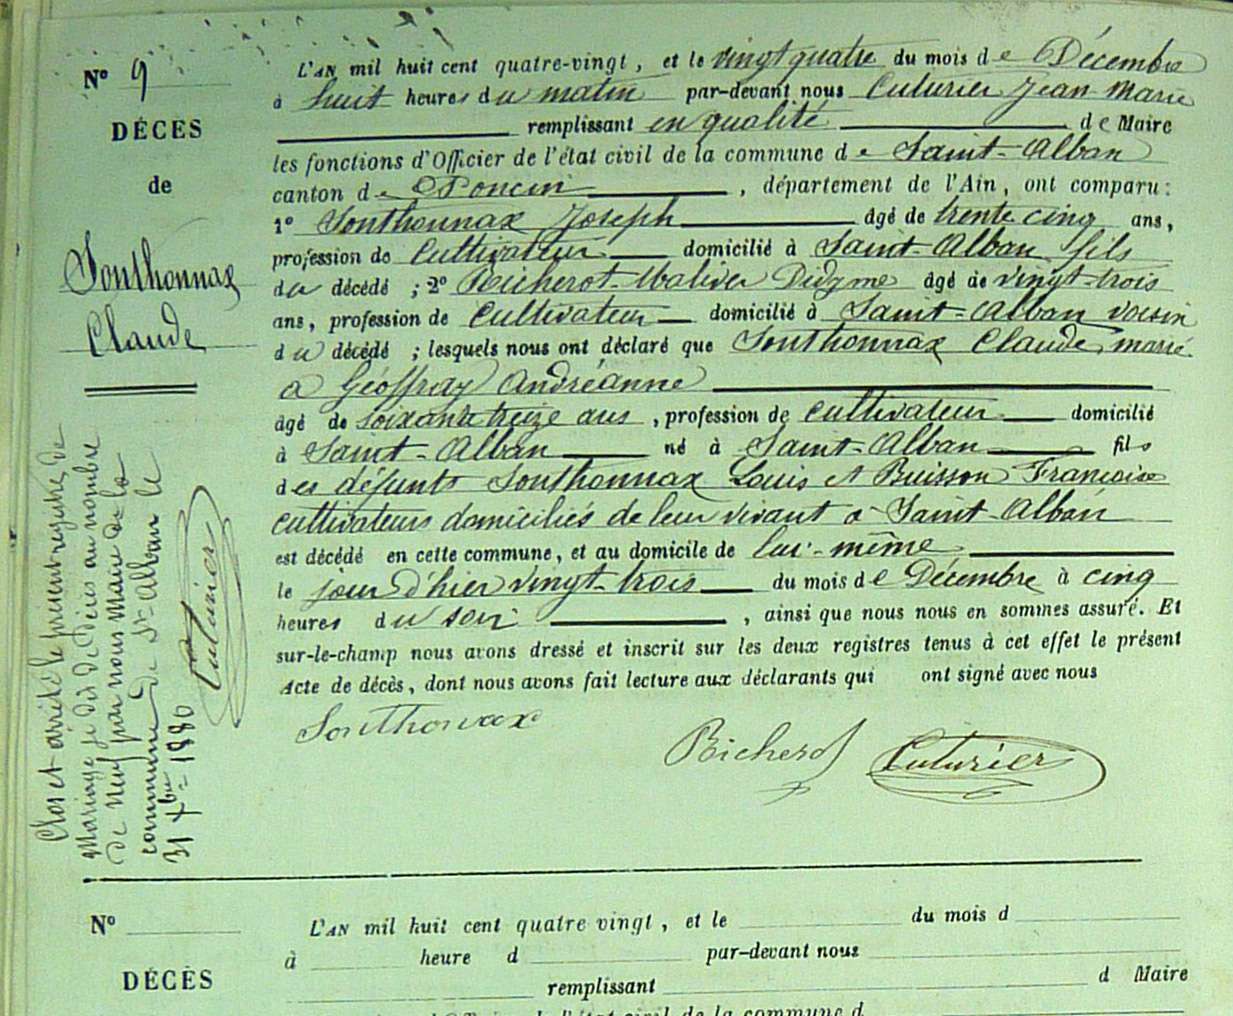 Nº 9
DÉCES
de
Sonthonnax
Claude
L'AN mil huit cent quatre-vingt, et le vingt quatre du mois de Décembre
à huit heures du matin par-devant nous Cuturier Jean Marie
remplissant en qualité de Maire
les fonctions d'Officier de l'état civil de la commune de Saint-Alban
canton de Poncin, département de l'Ain, ont comparu:
1º Sonthonnax Joseph âgé de trente cinq ans,
profession de Cultivateur domicilié à Saint-Alban fils
du décédé ; 2º Richerot Didyme âgé de vingt-trois
ans, profession de Cultivateur domicilié à Saint-Alban voisin
du décédé ; lesquels nous ont déclaré que Sonthonnax Claude, marié
à Géoffray Andréanne
âgé de soixante treize ans, profession de Cultivateur domicilié
à Saint-Alban né à Saint-Alban fils
des défunts Sonthonnax Louis et Buisson Françoise
cultivateurs domiciliés de leur vivant à Saint-Alban
est décédé en cette commune, et au domicile de lui-même
le jour d'hier vingt-trois du mois de Décembre à cinq
heures du soir, ainsi que nous nous en sommes assuré. Et
sur-le-champ nous avons dressé et inscrit sur les deux registres tenus à cet effet le présent
Acte de décès, dont nous avons fait lecture aux déclarants qui ont signé avec nous
Sonthonnax
Richerot Cuturier
Clos et arrêté le présent registre de
Mariage je dis de Décès au nombre
de neuf par nous Maire de la
commune de St-Alban le
31 Xbre 1880
Cuturier
Nº
DÉCÈS
L'AN mil huit cent quatre vingt, et le du mois d
à heure d par-devant nous
remplissant d Maire